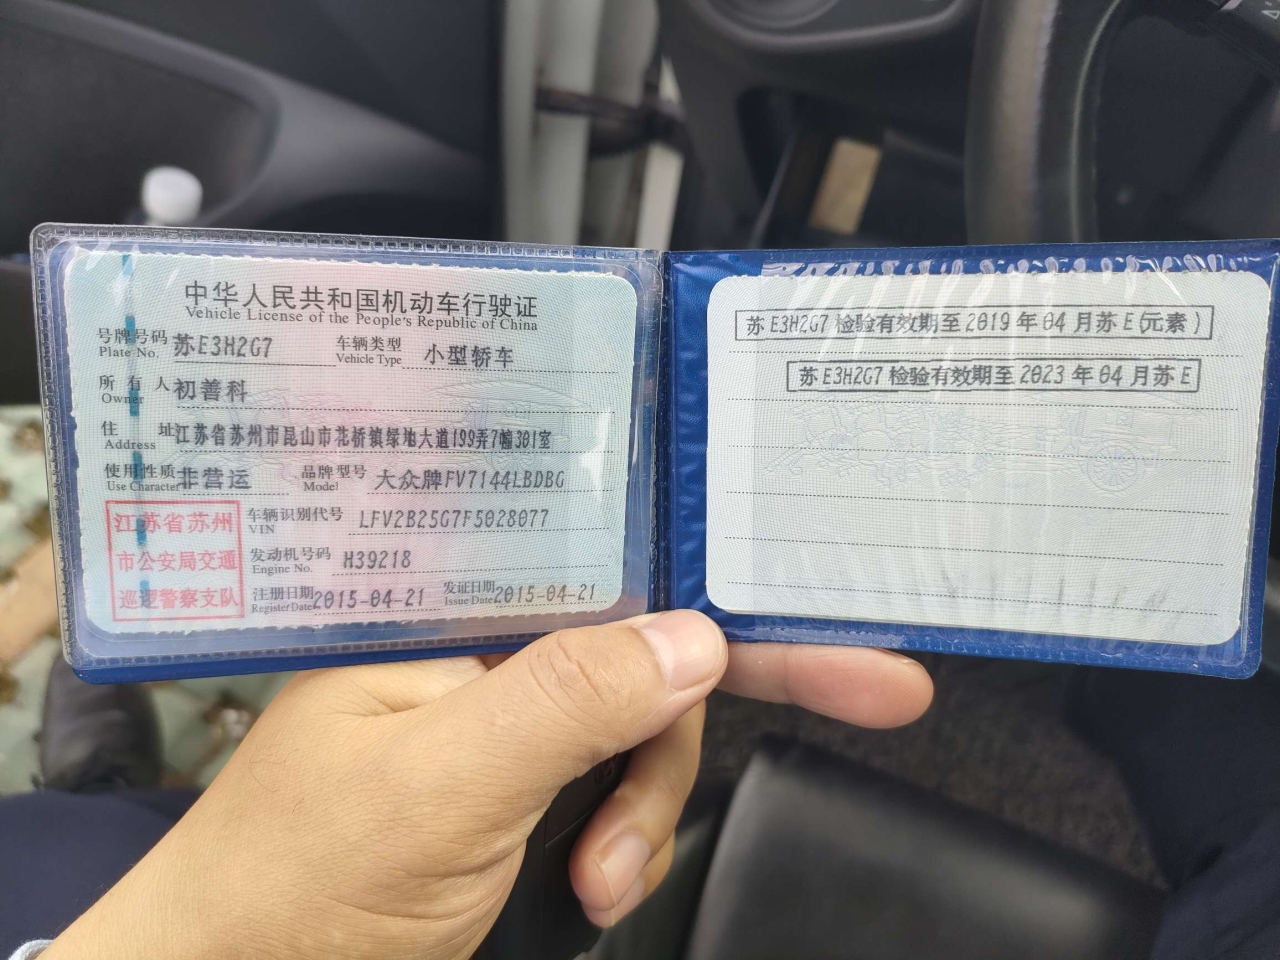 中华人民共和国机动车行驶证
Vehicle License of the People's Republic of China
号牌号码 苏E3H2G7 车辆类型 小型轿车
Plate No. Vehicle Type
所有人 初善科
Owner
住址 江苏省苏州市昆山市花桥镇绿地大道199弄7幢301室
Address
使用性质 非营运 品牌型号 大众牌FV7144LBDBG
Use Character Model
江苏省苏州
市公安局交通
巡逻警察支队
车辆识别代号 LFV2B25G7F5028077
VIN
发动机号码 H39218
Engine No.
注册日期 2015-04-21 发证日期 2015-04-21
Register Date Issue Date
苏E3H2G7 检验有效期至 2019 年 04 月苏 E(元素)
苏E3H2G7 检验有效期至 2023 年 04 月苏 E